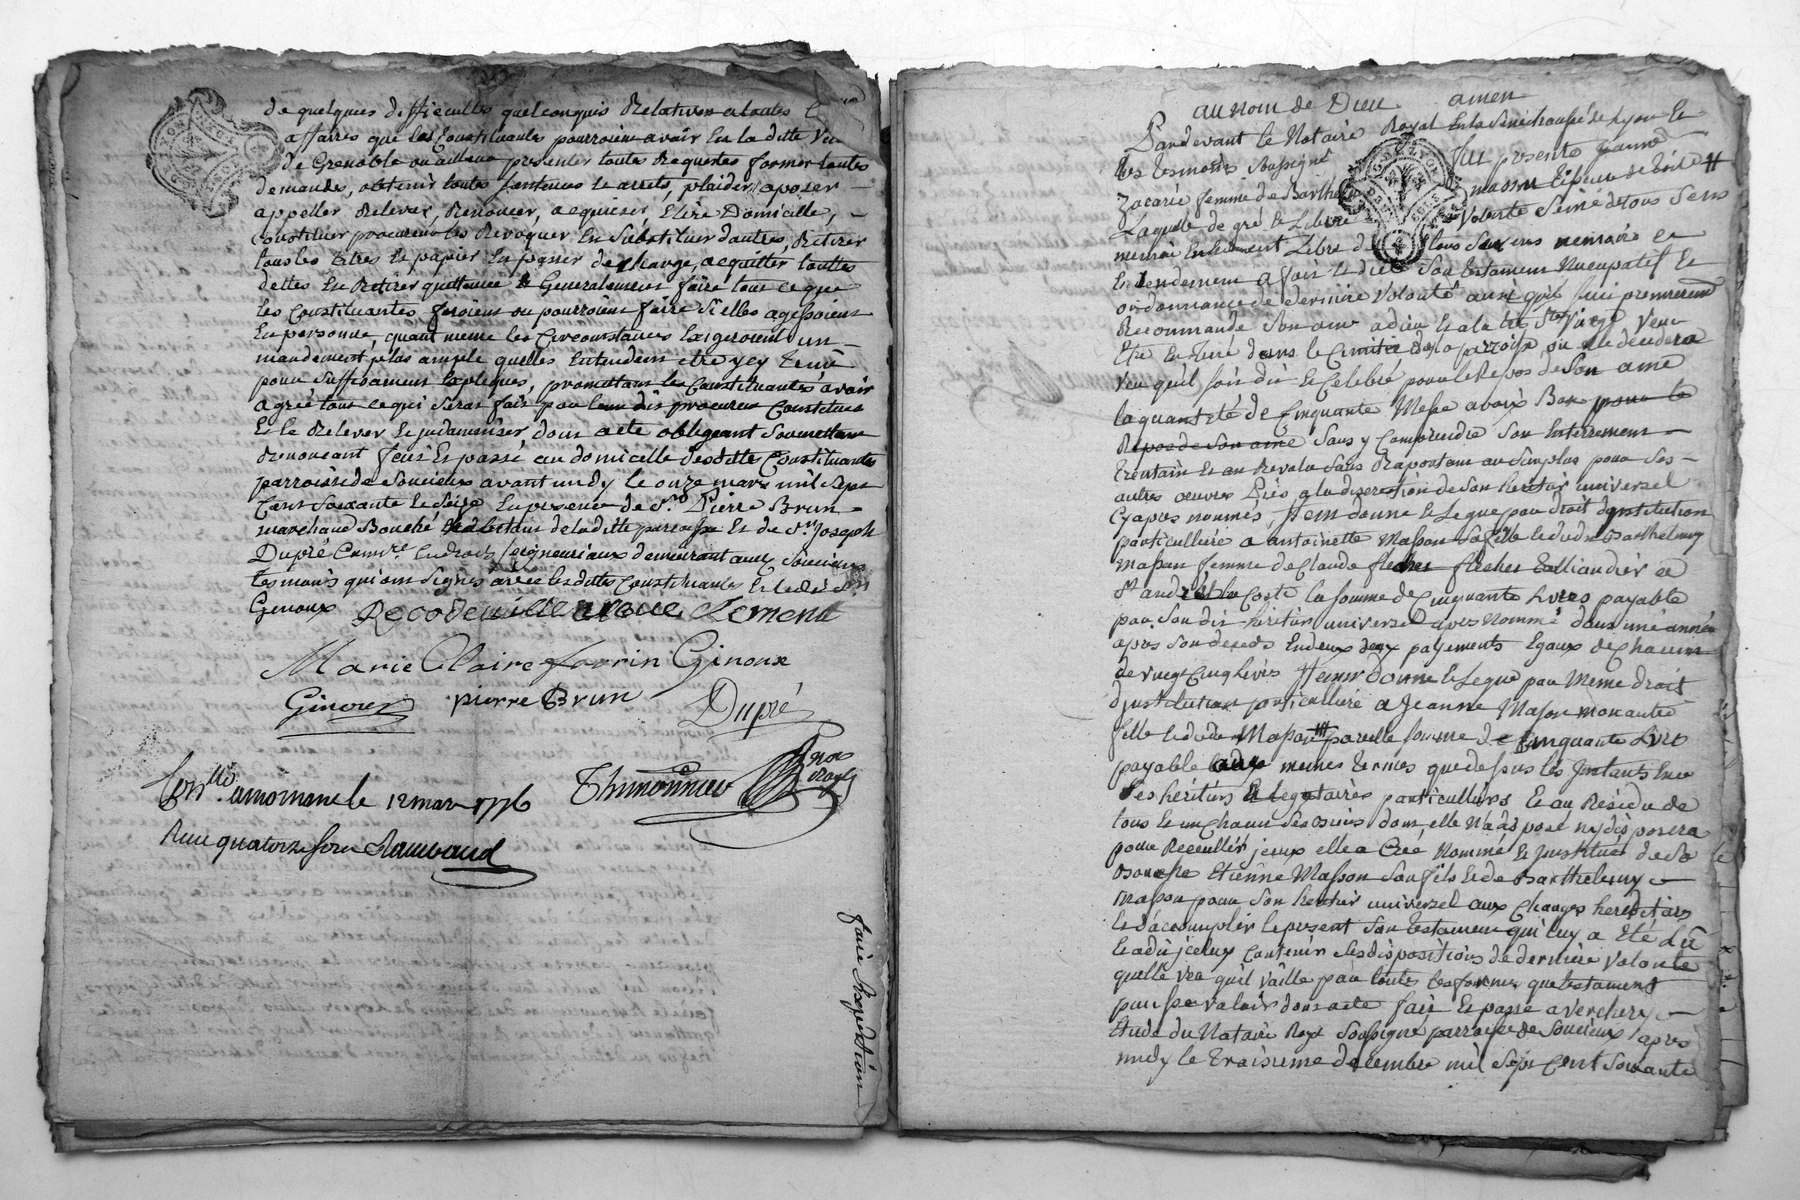 de quelques difficultés quelconques Relatives a toutes
affaires que les Constituantes pourroient avoir En la ditte Ville
de Grenoble ou ailleurs presenter toute Requettes former toutes
demandes, obtenir toutes sentences et arrets, plaider, oposer
appeller, Relever, Renoncer, acquiescer, Elire Domicille,
Constituer procureur les Revoquer En Substituer d'autres, Retirer
tous les titres Et papier En passer decharge, acquitter touttes
dettes En Retirer quittance & Generalement faire tout ce que
les Constituantes feroient ou pourroient faire Si elles agissoient
En personne, quant meme les Circonstances Exigeroient un
mandement plus ample quelles Entendent etre ycy tenu
pour Suffisament Expliqués, promettant les Constituantes avoir
agréé tout ce qui Seras fait par leur dit procureur Constitué
Et le Relever Et jndamniser dont acte obligeant Soumettant
Renonceant fait Et passé au domicelle desdittes Constituantes
parroisse de Soucieux avant midy le onze mars mil Sept
Cent Soixante Et Seize En presence de Sr. Pierre Brun
marchand Bouché habitant de laditte parroisse Et de Sr. Joseph
Dupré Commre. En droits Seigneuriaux demeurant audt. Soucieux
temoins qui ont Signés avec lesdittes Constituantes Et ledit Sr.
Genoux
Clement
Marie Claire favrin Ginoux
Ginoux pierre Brun Dupré
Thimonnier Nore Royal
Conllé. a mornant le 12 mars 1776
Reçu quatorze sols Raimbaud
faite Expedition
au nom de Dieu amen
Pardevant le Notaire Royal En la Sénéchaussée de Lyon Et
les temoins Soussignés fut presente
Zacarie femme de Barthelemy masson tisseur de toile
Laquelle de gré Et Libre Volonté Seine de tous Sens
memoire Entendement Libre de tous Ses Sens memoire Et
Entendement a fait Et dicté Son testament Nuncupatif Et
ordonnance de derniere Volonté ainsi qu'il suit premierement
Recommande Son ame a dieu Et a la tres Ste Vierge Veut
Etre Enterré dans le Cimitier de la parroisse ou Elle decedera
Veu qu'il soit dit Et Celebré pour le Repos de Son ame
la quantité de Cinquante Messe a voix Basse pour le
Repos de Son ame Sans y Comprendre Son Enterrement
trentain Et au Revolu Sans Raportant au Surplus pour Ses
autres œuvres Pies a la discretion de Son heritier universel
Cy apres nommés, Item donne Et Legue par droit dinstitution
particulliere a antoinette Masson Sa fille Et dudit Barthelemy
masson femme de Claude flecher flecher talliandier a
St. andré la Coste la somme de Cinquante Livres payable
par Son dit heritier universel apres Nommé dans une année
apres Son deceds En deux payements Egaux de Chacun
de vingt Cinq Livres Item donne Et Legue par Meme droit
dinstitution particulliere a Jeanne Masson mon autre
fille Et dudit Masson pareille somme de Cinquante Livres
payable aux memes termes que dessus les Jnstituants Ences
Ses héritiers Et legataires particulliers Et au Residu de
tous Et un Chacun Ses Biens dont elle Na disposé ny disposera
pour Recuellir jceux elle a Créé Nommé Et Jnstitué de Sa
Bouche Etienne Masson Son fils Et de Barthelemy
masson pour Son heritier universel aux Charges hereditaires
Et daccomplir le present Son testament qui luy a Eté Lû
Et a dit jceluy Contenir Ses dispositions de derniere Volonté
quelle veu qu'il Vaille par toutes les formes que testament
puisse valoir dont acte fait Et passé a verchery
Etude du Notaire Royl Soussigné parroisse de Soucieux apres
midy le treisieme decembre mil Sept Cent Soixante